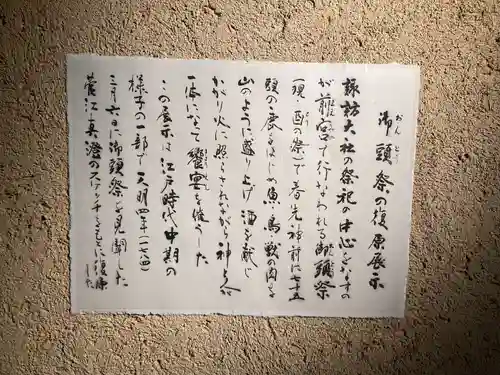 御頭祭の復原展示
諏訪大社の祭祀の中心をなすの
が前宮で行なわれる御頭祭
(現・酉の祭)で春先神前に七十五
頭の鹿をはじめ魚・鳥・獣の肉を
山のように盛り上げ酒を献じ
かがり火に照らされながら神と人が
一体になって饗宴を催うした
この展示は江戸時代中期の
様子の一部で天明四年(一七八四)
三月六日に御頭祭を見聞した
菅江真澄のスケッチをもとに復原
した